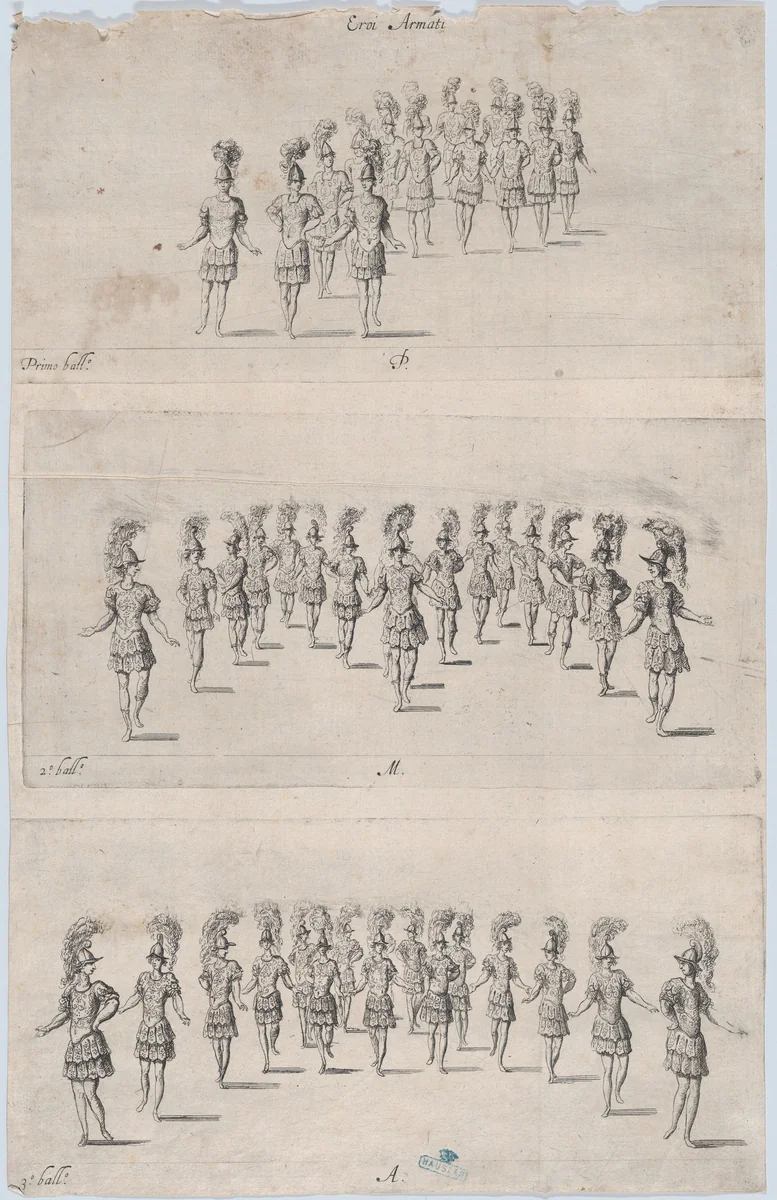 Eroi Armati
Primo ball.º
P.
2.º ball.º
M.
3.º ball.º
A.